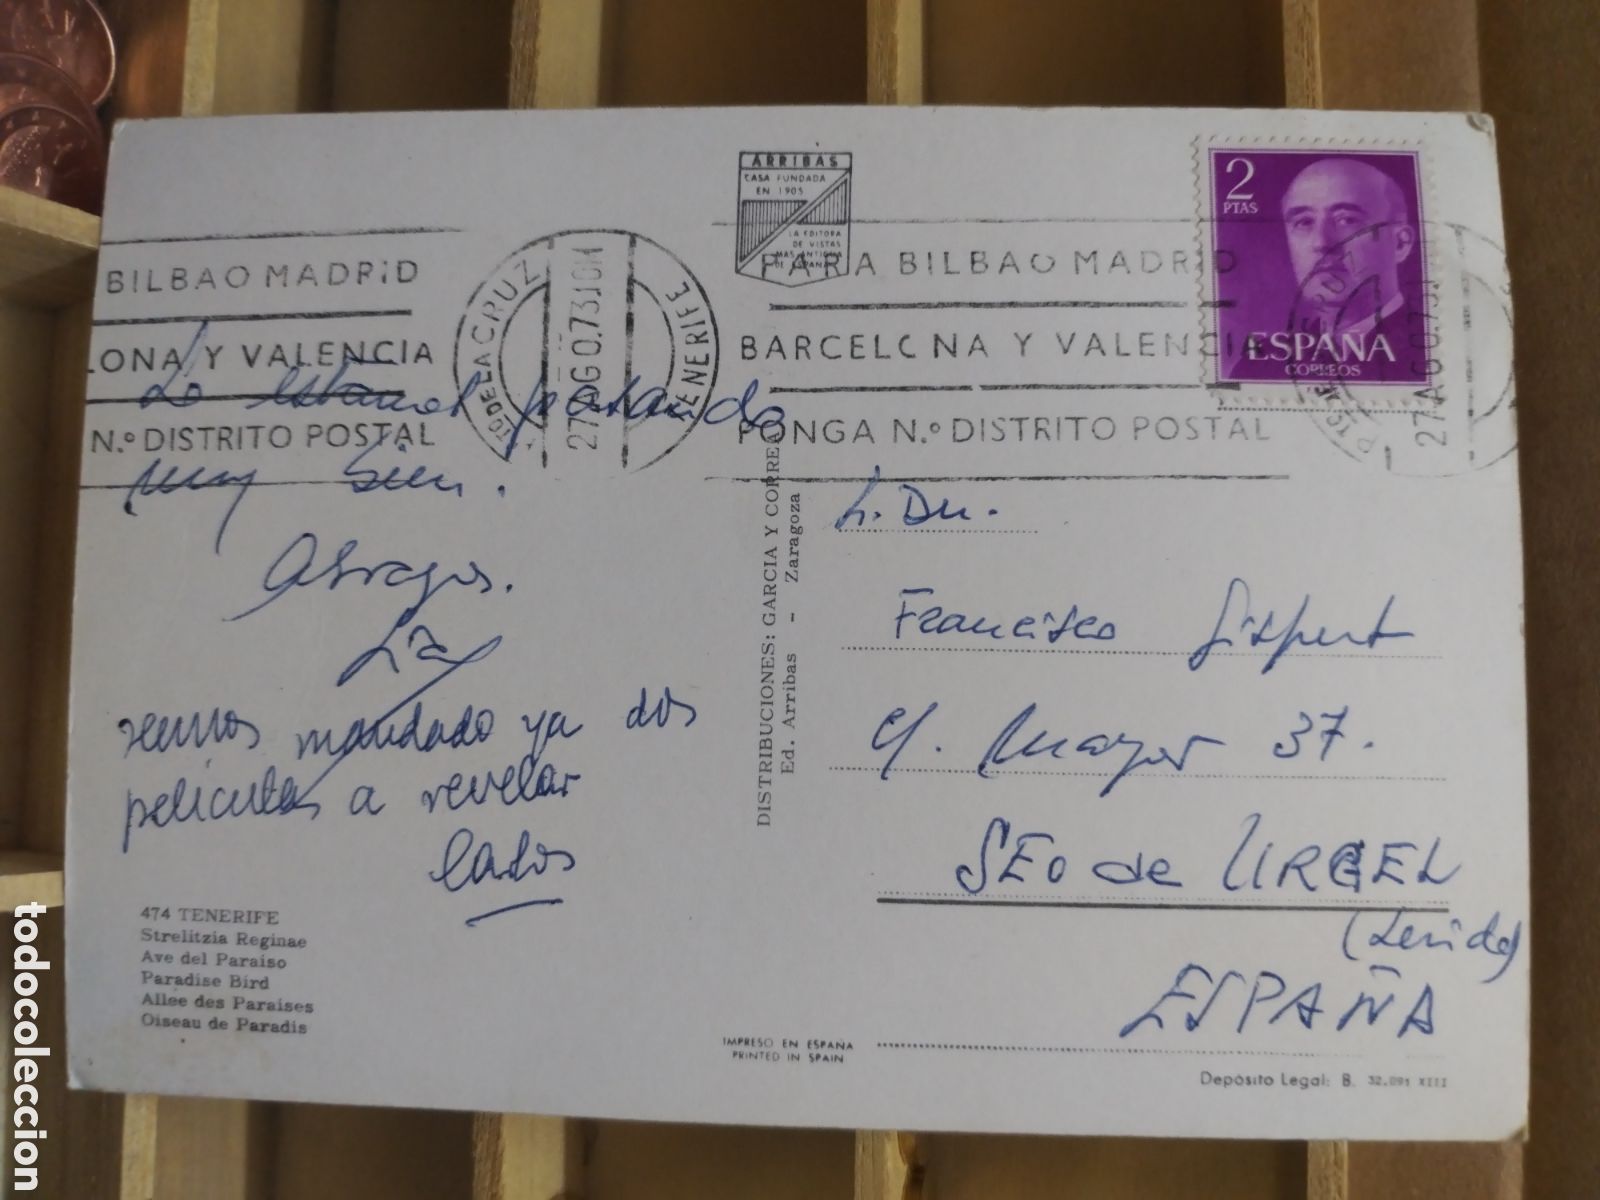 ARRIBAS
CASA FUNDADA
EN 1905
LA EDITORA
DE VISTAS
MAS ANTIGUA
DE ESPAÑA
2
PTAS
ESPAÑA
CORREOS
BILBAO MADRID
LONA Y VALENCIA
N.º DISTRITO POSTAL
PTO DE LA CRUZ
27 AGO. 73 10M
TENERIFE
PARA BILBAO MADRID
BARCELONA Y VALENCIA
PONGA N.º DISTRITO POSTAL
27 AGO. 73
Lo estamos pasando
muy bien.
Abrazos.
hemos mandado ya dos
peliculas a revelar
Carlos
474 TENERIFE
Strelitzia Reginae
Ave del Paraiso
Paradise Bird
Allee des Paraises
Oiseau de Paradis
DISTRIBUCIONES: GARCIA Y CORREA
Ed. Arribas - Zaragoza
Francisco Gispert
c/. Mayor 37.
SEO de URGEL
(Lerida)
ESPAÑA
IMPRESO EN ESPAÑA
PRINTED IN SPAIN
Depósito Legal: B. 32.091 XIII
todocoleccion